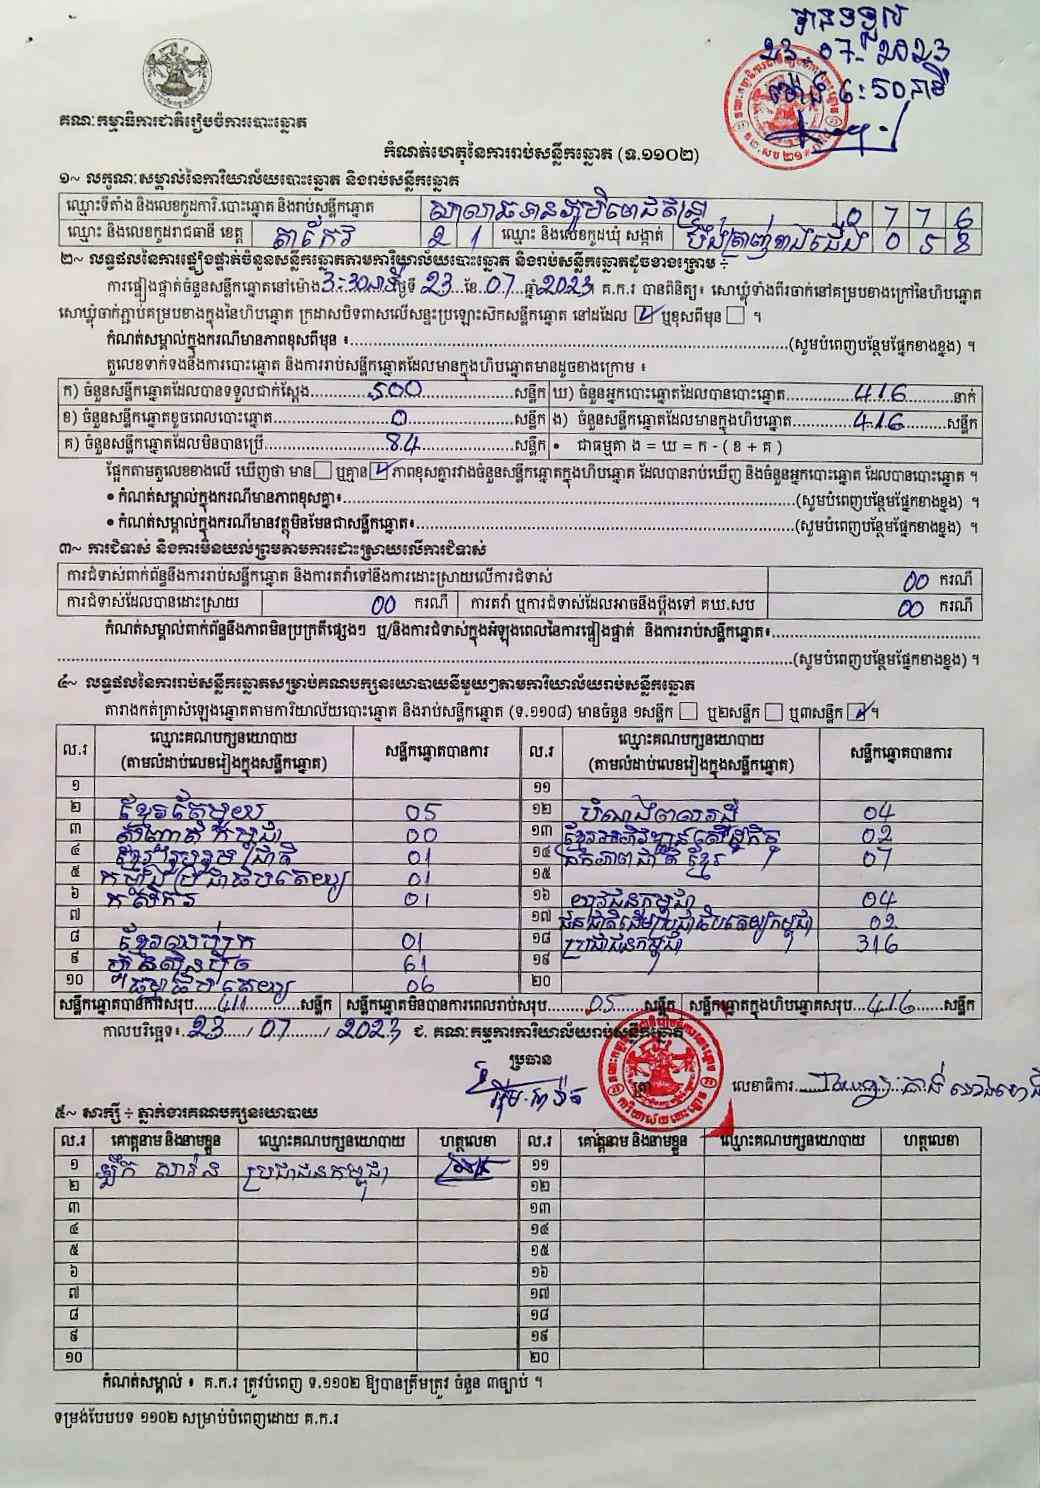 បានទទួល
23.07.2023
ម៉ោង 6:50 នាទី
គណៈកម្មាធិការជាតិរៀបចំការបោះឆ្នោត
កំណត់ហេតុនៃការរាប់សន្លឹកឆ្នោត (ទ.១១០២)
១~ លក្ខណៈសម្គាល់នៃការិយាល័យបោះឆ្នោត និងរាប់សន្លឹកឆ្នោត
ឈ្មោះទីតាំង និងលេខកូដការិ.បោះឆ្នោត និងរាប់សន្លឹកឆ្នោត 0 7 7 6
ឈ្មោះ និងលេខកូដរាជធានី ខេត្ត តាកែវ 2 1 ឈ្មោះ និងលេខកូដឃុំ សង្កាត់ បឹងត្រាញ់ខាងជើង 0 5
២~ លទ្ធផលនៃការផ្ទៀងផ្ទាត់ចំនួនសន្លឹកឆ្នោតតាមការិយាល័យបោះឆ្នោត និងរាប់សន្លឹកឆ្នោតដូចខាងក្រោម ÷
ការផ្ទៀងផ្ទាត់ចំនួនសន្លឹកឆ្នោតនៅម៉ោង 3-30នាទី ថ្ងៃទី 23 ខែ 07 ឆ្នាំ 2023 គ.ក.រ បានពិនិត្យ៖ សោឃ្លុំទាំងពីរចាក់នៅគម្របខាងក្រៅនៃហិបឆ្នោត
សោឃ្លុំចាក់ភ្ជាប់គម្របខាងក្នុងនៃហិបឆ្នោត ក្រដាសបិទពាសលើសន្ទះប្រឡោះសិកសន្លឹកឆ្នោត នៅដដែល ☑ ឬខុសពីមុន ☐ ។
កំណត់សម្គាល់ក្នុងករណីមានភាពខុសពីមុន ៖ (សូមបំពេញបន្ថែមផ្នែកខាងខ្នង) ។
តួលេខទាក់ទងនឹងការបោះឆ្នោត និងការរាប់សន្លឹកឆ្នោតដែលមានក្នុងហិបឆ្នោតមានដូចខាងក្រោម ៖
ក) ចំនួនសន្លឹកឆ្នោតដែលបានទទួលជាក់ស្តែង 500 សន្លឹក ឃ) ចំនួនអ្នកបោះឆ្នោតដែលបានបោះឆ្នោត 416 នាក់
ខ) ចំនួនសន្លឹកឆ្នោតខូចពេលបោះឆ្នោត 0 សន្លឹក ង) ចំនួនសន្លឹកឆ្នោតដែលមានក្នុងហិបឆ្នោត 416 សន្លឹក
គ) ចំនួនសន្លឹកឆ្នោតដែលមិនបានប្រើ 84 សន្លឹក • ជាធម្មតា ង = ឃ = ក - ( ខ + គ )
ផ្អែកតាមតួលេខខាងលើ ឃើញថា មាន ☐ ឬគ្មាន ☑ ភាពខុសគ្នារវាងចំនួនសន្លឹកឆ្នោតក្នុងហិបឆ្នោត ដែលបានរាប់ឃើញ និងចំនួនអ្នកបោះឆ្នោត ដែលបានបោះឆ្នោត ។
• កំណត់សម្គាល់ក្នុងករណីមានភាពខុសគ្នា៖ (សូមបំពេញបន្ថែមផ្នែកខាងខ្នង) ។
• កំណត់សម្គាល់ក្នុងករណីមានវត្ថុមិនមែនជាសន្លឹកឆ្នោត៖ (សូមបំពេញបន្ថែមផ្នែកខាងខ្នង) ។
៣~ ការជំទាស់ និងការមិនយល់ព្រមតាមការដោះស្រាយលើការជំទាស់
ការជំទាស់ពាក់ព័ន្ធនឹងការរាប់សន្លឹកឆ្នោត និងការតវ៉ាទៅនឹងការដោះស្រាយលើការជំទាស់ 00 ករណី
ការជំទាស់ដែលបានដោះស្រាយ 00 ករណី ការតវ៉ា ឬការជំទាស់ដែលអាចនឹងប្តឹងទៅ គឃ.សប 00 ករណី
កំណត់សម្គាល់ពាក់ព័ន្ធនឹងភាពមិនប្រក្រតីផ្សេងៗ ឬ/និងការជំទាស់ក្នុងអំឡុងពេលនៃការផ្ទៀងផ្ទាត់ និងការរាប់សន្លឹកឆ្នោត៖
(សូមបំពេញបន្ថែមផ្នែកខាងខ្នង) ។
៤~ លទ្ធផលនៃការរាប់សន្លឹកឆ្នោតសម្រាប់គណបក្សនយោបាយនីមួយៗតាមការិយាល័យរាប់សន្លឹកឆ្នោត
តារាងកត់ត្រាសំឡេងឆ្នោតតាមការិយាល័យបោះឆ្នោត និងរាប់សន្លឹកឆ្នោត (ទ.១១០៨) មានចំនួន ១សន្លឹក ☐ ឬ២សន្លឹក ☐ ឬ៣សន្លឹក ☑ ។
ល.រ ឈ្មោះគណបក្សនយោបាយ (តាមលំដាប់លេខរៀងក្នុងសន្លឹកឆ្នោត) សន្លឹកឆ្នោតបានការ ល.រ ឈ្មោះគណបក្សនយោបាយ (តាមលំដាប់លេខរៀងក្នុងសន្លឹកឆ្នោត) សន្លឹកឆ្នោតបានការ
១ ១១
២ ខ្មែរតែមួយ 05 ១២ បំណងពលរដ្ឋ 04
៣ សញ្ជាតិកម្ពុជា 00 ១៣ ខ្មែរអភិវឌ្ឍន៍សេដ្ឋកិច្ច 02
៤ ខ្មែររួបរួមជាតិ 01 ១៤ ឯកភាពជាតិខ្មែរ 07
៥ កម្លាំងប្រជាធិបតេយ្យ 01 ១៥
៦ កសិករ 01 ១៦ យុវជនកម្ពុជា 04
៧ ១៧ ជនជាតិដើមប្រជាធិបតេយ្យកម្ពុជា 02
៨ ខ្មែរឈប់ក្រ 01 ១៨ ប្រជាជនកម្ពុជា 316
៩ ហ្វ៊ុនស៊ិនប៉ិច 61 ១៩
១០ ធម្មាធិបតេយ្យ 06 ២០
សន្លឹកឆ្នោតបានការសរុប 411 សន្លឹក សន្លឹកឆ្នោតមិនបានការពេលរាប់សរុប 05 សន្លឹក សន្លឹកឆ្នោតក្នុងហិបឆ្នោតសរុប 416 សន្លឹក
កាលបរិច្ឆេទ៖ 23 / 07 / 2023 ជ. គណៈកម្មការការិយាល័យរាប់សន្លឹកឆ្នោត
ប្រធាន
លេខាធិការ
៥~ សាក្សី ÷ ភ្នាក់ងារគណបក្សនយោបាយ
ល.រ គោត្តនាម និងនាមខ្លួន ឈ្មោះគណបក្សនយោបាយ ហត្ថលេខា ល.រ គោត្តនាម និងនាមខ្លួន ឈ្មោះគណបក្សនយោបាយ ហត្ថលេខា
១ ប្រជាជនកម្ពុជា ១១
២ ១២
៣ ១៣
៤ ១៤
៥ ១៥
៦ ១៦
៧ ១៧
៨ ១៨
៩ ១៩
១០ ២០
កំណត់សម្គាល់ ៖ គ.ក.រ ត្រូវបំពេញ ទ.១១០២ ឱ្យបានត្រឹមត្រូវ ចំនួន ៣ច្បាប់ ។
ទម្រង់បែបបទ ១១០២ សម្រាប់បំពេញដោយ គ.ក.រ